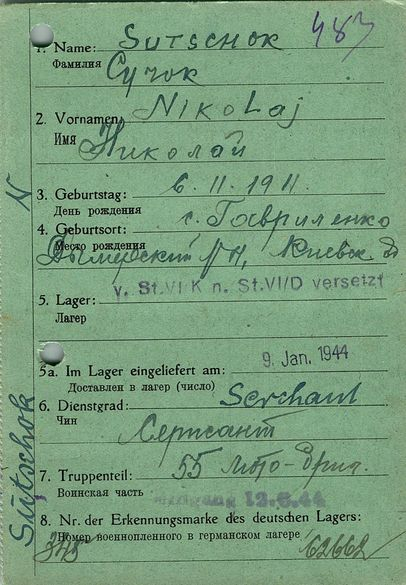 483
1. Name: SUTSCHOK
Фамилия Сучок
2. Vornamen: NIKOLAJ
Имя Николай
3. Geburtstag: 6.11.1911.
День рождения
4. Geburtsort: с. Гавриленко
Место рождения Дымерский р/н, Киевск.
v. St.VI K n. St.VI/D versetzt
5. Lager:
Лагерь
5a. Im Lager eingeliefert am: 9. Jan. 1944
Доставлен в лагерь (число)
6. Dienstgrad: Serchant
Чин Сержант
7. Truppenteil: 55 мото-бриг.
Воинская часть 12.6.44
8. Nr. der Erkennungsmarke des deutschen Lagers:
Номер военнопленного в германском лагере
345 62662
N
Sutschok